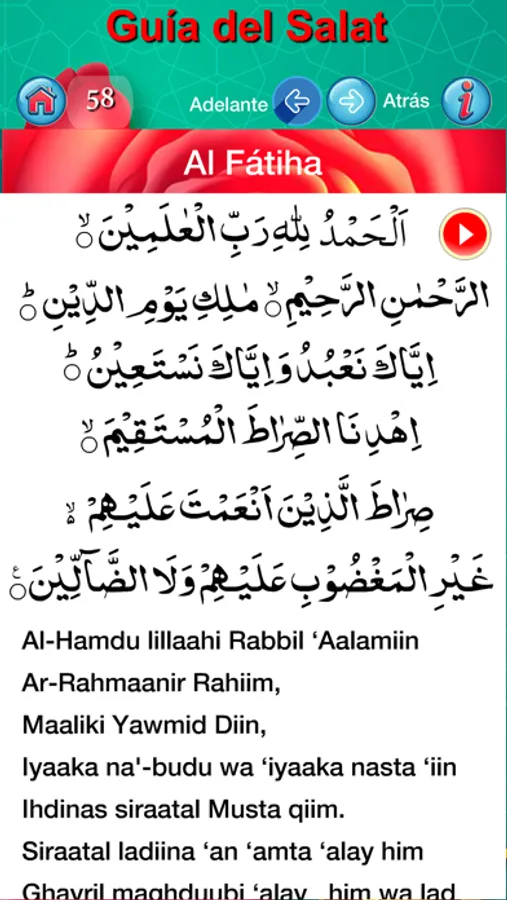 Guía del Salat
58
Adelante
Atrás
i
Al Fátiha
اَلْحَمْدُ لِلّٰهِ رَبِّ الْعٰلَمِيْنَ ۙ
الرَّحْمٰنِ الرَّحِيْمِ ۙ مٰلِكِ يَوْمِ الدِّيْنِ ؕ
اِيَّاكَ نَعْبُدُ وَاِيَّاكَ نَسْتَعِيْنُ ؕ
اِهْدِنَا الصِّرَاطَ الْمُسْتَقِيْمَ ۙ
صِرَاطَ الَّذِيْنَ اَنْعَمْتَ عَلَيْهِمْ ۙ
غَيْرِ الْمَغْضُوْبِ عَلَيْهِمْ وَلَا الضَّآلِّيْنَ ع
Al-Hamdu lillaahi Rabbil ‘Aalamiin
Ar-Rahmaanir Rahiim,
Maaliki Yawmid Diin,
Iyaaka na'-budu wa ‘iyaaka nasta ‘iin
Ihdinas siraatal Musta qiim.
Siraatal ladiina ‘an ‘amta ‘alay him
Ghayril maghduubi ‘alay him wa lad